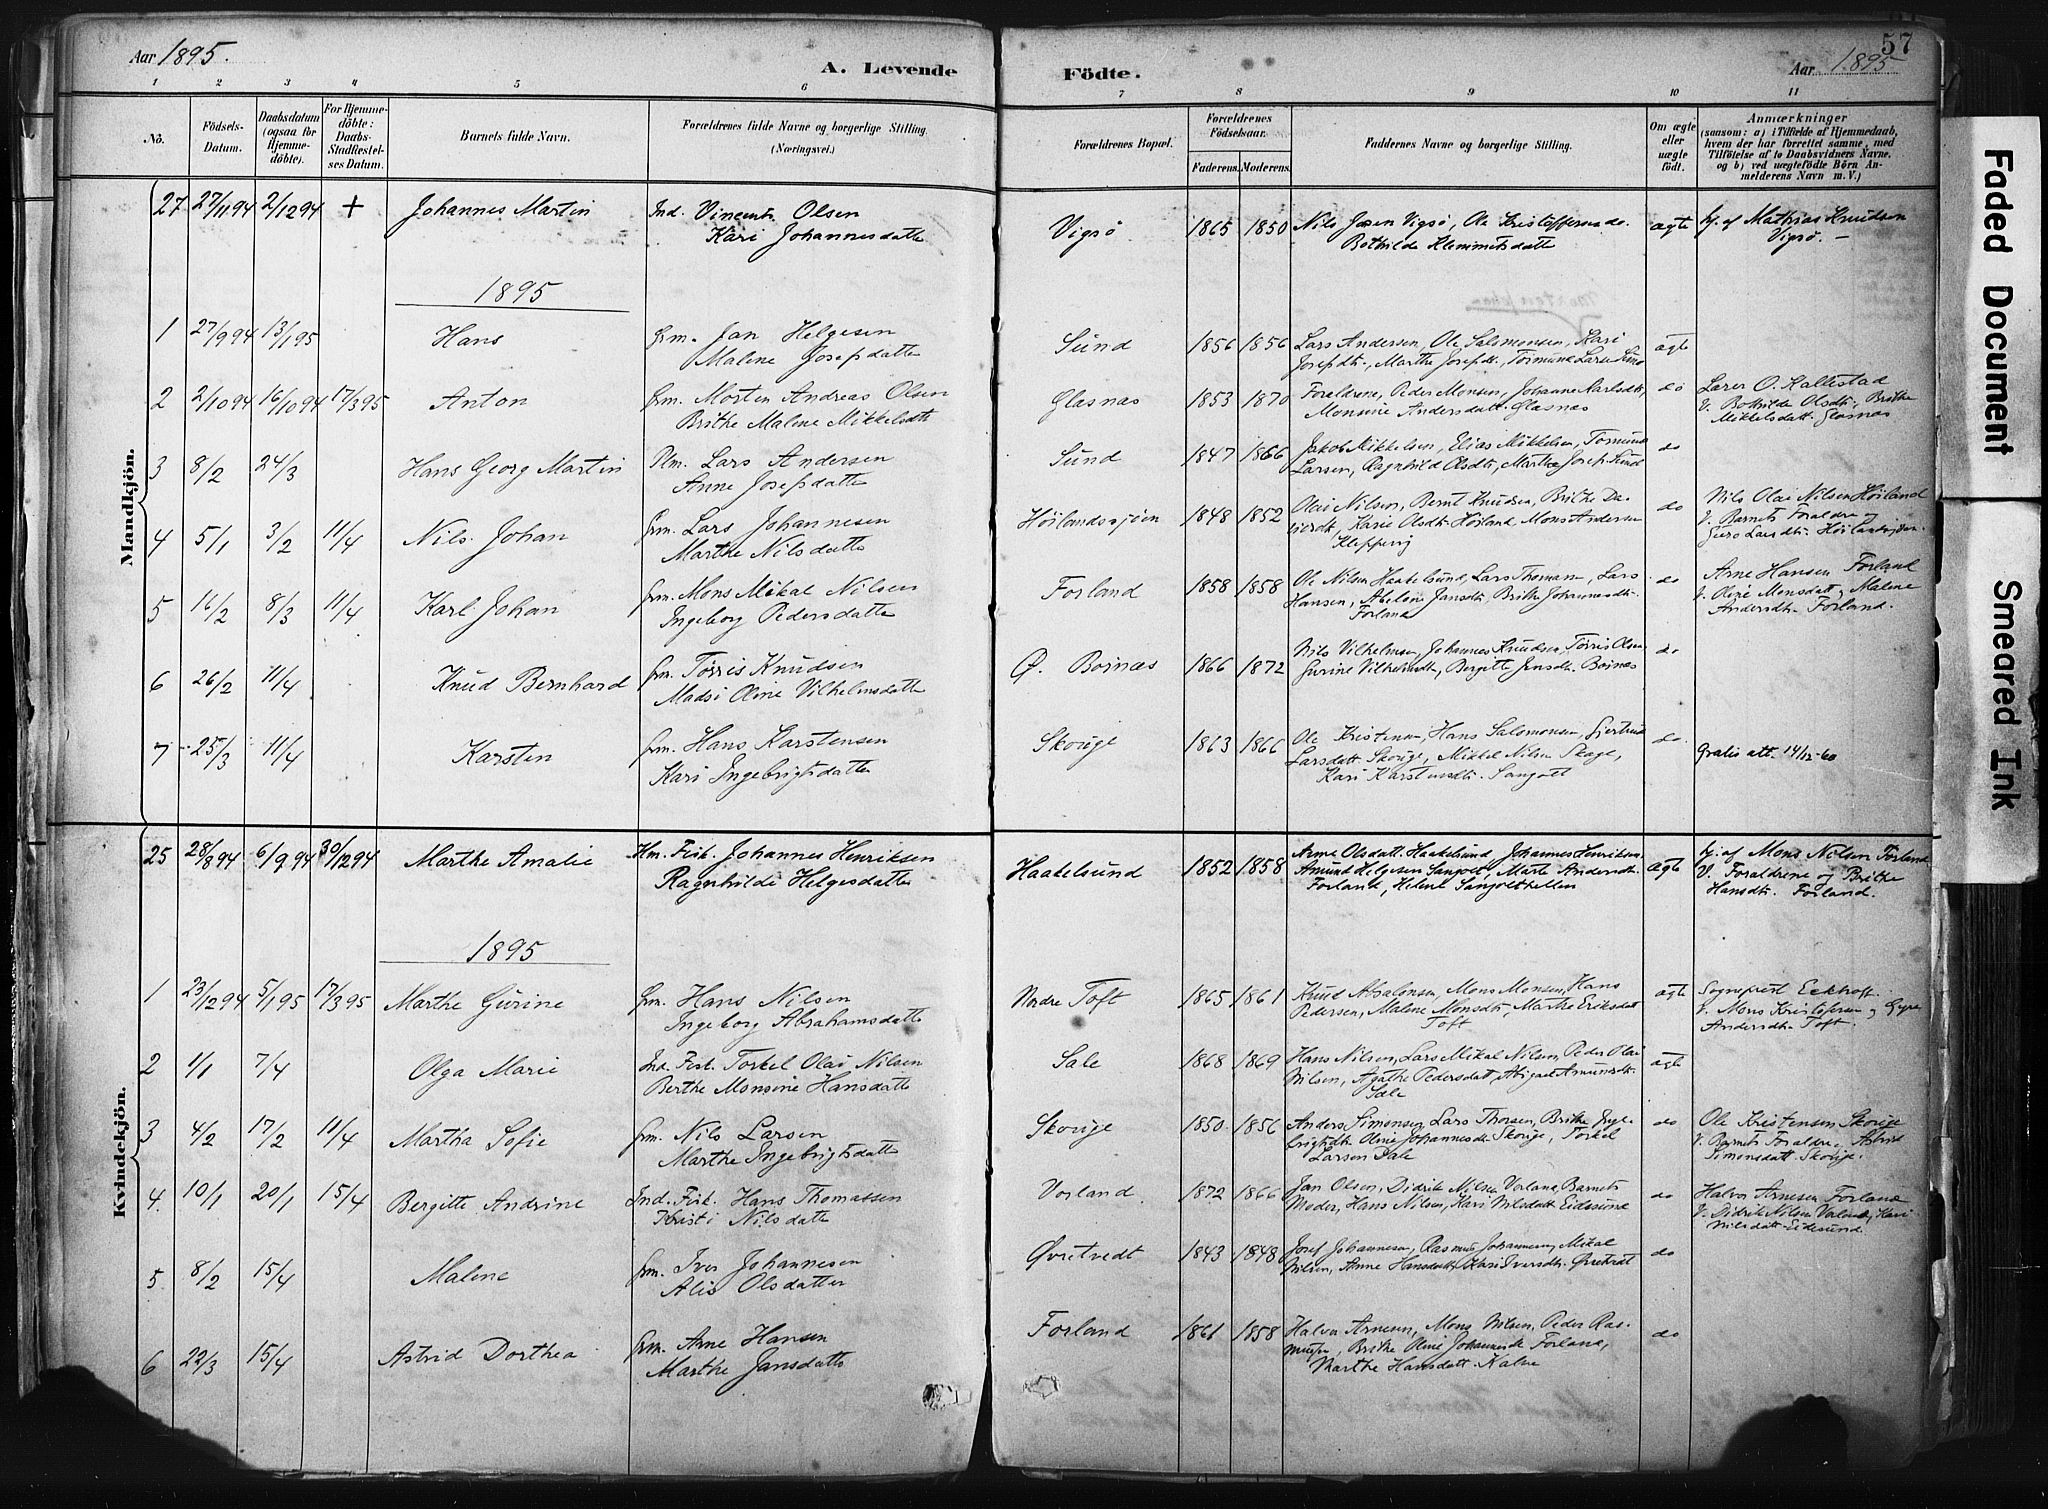 Aar 1895.
A. Levende Födte.
Aar 1895
57
1 2 3 4 5 6 7 8 9 10 11
No.
Födsels-Datum.
Daabsdatum (ogsaa for Hjemme-döbte).
For Hjemme-döbte: Daabs-Stadfæstel-ses Datum.
Barnets fulde Navn.
Forældrenes fulde Navne og borgerlige Stilling. (Næringsvei.)
Forældrenes Bopæl.
Forældrenes Födselsaar.
Faderens. Moderens.
Faddernes Navne og borgerlige Stilling.
Om ægte eller uægte födt.
Anmærkninger
(saasom: a) i Tilfælde af Hjemmedaab,
hvem der har forrettet samme, med
Tilföielse af to Daabsvidners Navne,
og b) ved uægtefödte Börn An-
melderens Navn m. V.)
Mandkjön.
27 27/11 94 2/12 94 + Johannes Martin Ind. Vincents Olsen Vigsö 1865 1850 Nils Jansen Vigsö, Ole Kristoffersen do. ægte hj. af Mathias Knudsen
Kari Johannesdatter Bothilde Klemmetsdatter Vigsö. —
1895
1 27/9 94 13/1 95 Hans Grm. Jan Helgesen Sund 1856 1856 Lars Andersen, Ole Salomonsen, Kari ægte
Malene Josefsdatter Josefsdt., Marthe Josefsdt., Tormund Larsen Sund
2 2/10 94 16/10 94 17/3 95 Anton Grm. Morten Andreas Olsen Glasnæs 1853 1870 Forældrene, Peder Monsen, Johanne Karlsdtr, do Lærer O. Kallestad
Brithe Malene Mikkelsdatter Monsine Andersdatt. Glasnæs V. Bothilde Olsdt., Brithe
Mikkelsdatt. Glasnæs
3 8/2 24/3 Hans Georg Martin Plm. Lars Andersen Sund 1847 1866 Jakob Mikkelsen, Elias Mikkelsen, Tormund do
Anne Josefsdatter Larsen, Ragnhild Olsdt, Marthe Josefs. Sund
4 5/1 3/2 11/4 Nils Johan Grm. Lars Johannesen Höilandssjöen 1848 1852 Olai Nilsen, Bernt Knudsen, Brithe Da- do Nils Olai Nilsen Höiland
Marthe Nilsdatter Karie Olsdt. Höiland, Mons Andersen V. Barnets Forældre og
Kleppervig Guro Larsdt. Höilandssjöen.
5 16/2 8/3 11/4 Karl Johan Grm. Mons Mikal Nilsen Forland 1858 1858 Ole Nilsen Haakelsund, Lars Thomassen, Lars do Arne Hansen Forland
Ingeborg Pedersdatter Hansen, Abelone Jansdt., Brithe Johannesdt. V. Oline Monsdatt. og Malene
Forland Andersdt. Forland.
6 26/2 11/4 Knud Bernhard Grm. Tørris Knudsen Ø. Boinæs 1866 1872 Nils Vilhelmsen, Johannes Knudsen, Tørris Olsen, do
Madsi Oline Vilhelmsdatter Gurine Vilhelmsdt., Bergitte Jensdt. Boinæs
7 25/3 11/4 Karsten Grm. Hans Karstensen Skouge 1863 1866 Ole Kristensen, Hans Salomonsen, Gjertrud do
Kari Ingebrigtsdatter Larsdatt. Skouge, Mikkel Nilsen Skage, Gratis att. 14/12-60
Kari Karstensdt. Sangolt
Kvindekjön.
25 28/8 94 6/9 94 30/12 94 Marthe Amalie Hm. Fisk. Johannes Henriksen Haakelsund 1852 1858 Anne Olsdatt. Haakelsund, Johannes Henriksen, ægte hj. af Mons Nilsen Forland
Ragnhilde Helgesdatter Amund Helgesen Sangolt, Marte Andersdt. V. Forældrene og Brithe
Forland, Helene Sangolthellen Hansdt. Forland.
1895
1 23/12 94 5/1 95 17/3 95 Marthe Gurine Grm. Hans Nilsen Nordre Toft 1865 1861 Knud Absalonsen, Mons Monsen, Hans ægte Sogneprest Eckhoff
Ingeborg Abrahamsdatter Pedersen, Malene Monsdt., Marthe Eriksdatt V. Mons Kristofersen og
Toft Andersdt. Toft.
2 1/1 7/4 Olga Marie Ind. Fisk. Torkel Olai Nilsen Sale 1868 1869 Hans Nilsen, Lars Mikal Nilsen, Peder Olai ægte
Berthe Monsine Hansdatter Nilsen, Agathe Pedersdatt, Abigael Amundsdt.
Sale
3 4/2 17/2 11/4 Martha Sofie Grm. Nils Larsen Skouge 1850 1856 Anders Simonsen, Lars Thorsen, Brithe Inge- do Ole Kristensen Skouge
Marthe Ingebrigtsdatter brigtsdt. Oline Johannesdt. Skouge, Torkel V. Barnets Forældre og Astrid
Larsen Sale Simonsdatt. Skouge.
4. 10/1 20/1 15/4 Bergitte Andrine Ind. Fisk. Hans Thomassen Vorland 1872 1866 Jan Olsen, Didrik Nilsen Vorland, Barnets do Halvor Arnesen Forland
Kristi Nilsdatter Moder, Hans Nilsen, Kari Nilsdatt Eidesund V. Didrik Nilsen, Kari
Nilsdatt. Eidesund.
5 8/2 15/4 Malene Grm. Iver Johannesen Øvretvedt 1843 1848 Josef Johannesen, Rasmus Johannesen, Mikal do
Alis Olsdatter Nilsen, Anne Hansdatt, Kari Iversdt. Øvretvedt
6 22/3 15/4 Astrid Dorthea Grm. Arne Hansen Forland 1861 1858 Halvor Arnesen, Mons Nilsen, Peder Ras- do
Marthe Jansdatter mussen, Brithe Oline Johannesdt Forland,
Marthe Hansdatt. Kalve
Faded Document
Smeared Ink